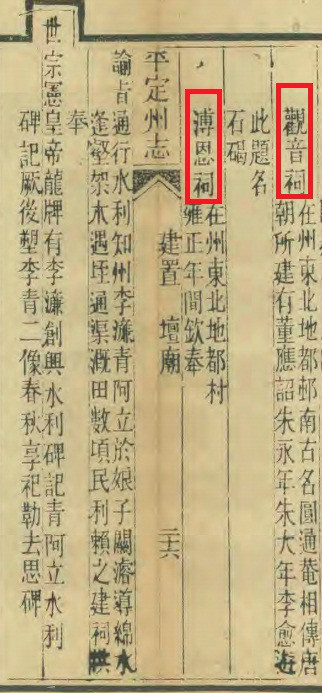 觀音祠
在州東北地都邨南古名圓通菴相傳唐
朝所建有董應詔朱永年朱大年李愈近
此題名
石碣
溥恩祠
在州東北地都村
雍正年間欽奉
平定州志 建置 壇廟 二十六
諭旨通行水利知州李濂青阿立於娘子關濬導綿水
逢壑架木遇垤通渠溉田數頃民利賴之建祠
奉
世宗憲皇帝龍牌有李濂創興水利碑記青阿立水利
碑記厥後塑李青二像春秋享祀勒去思碑